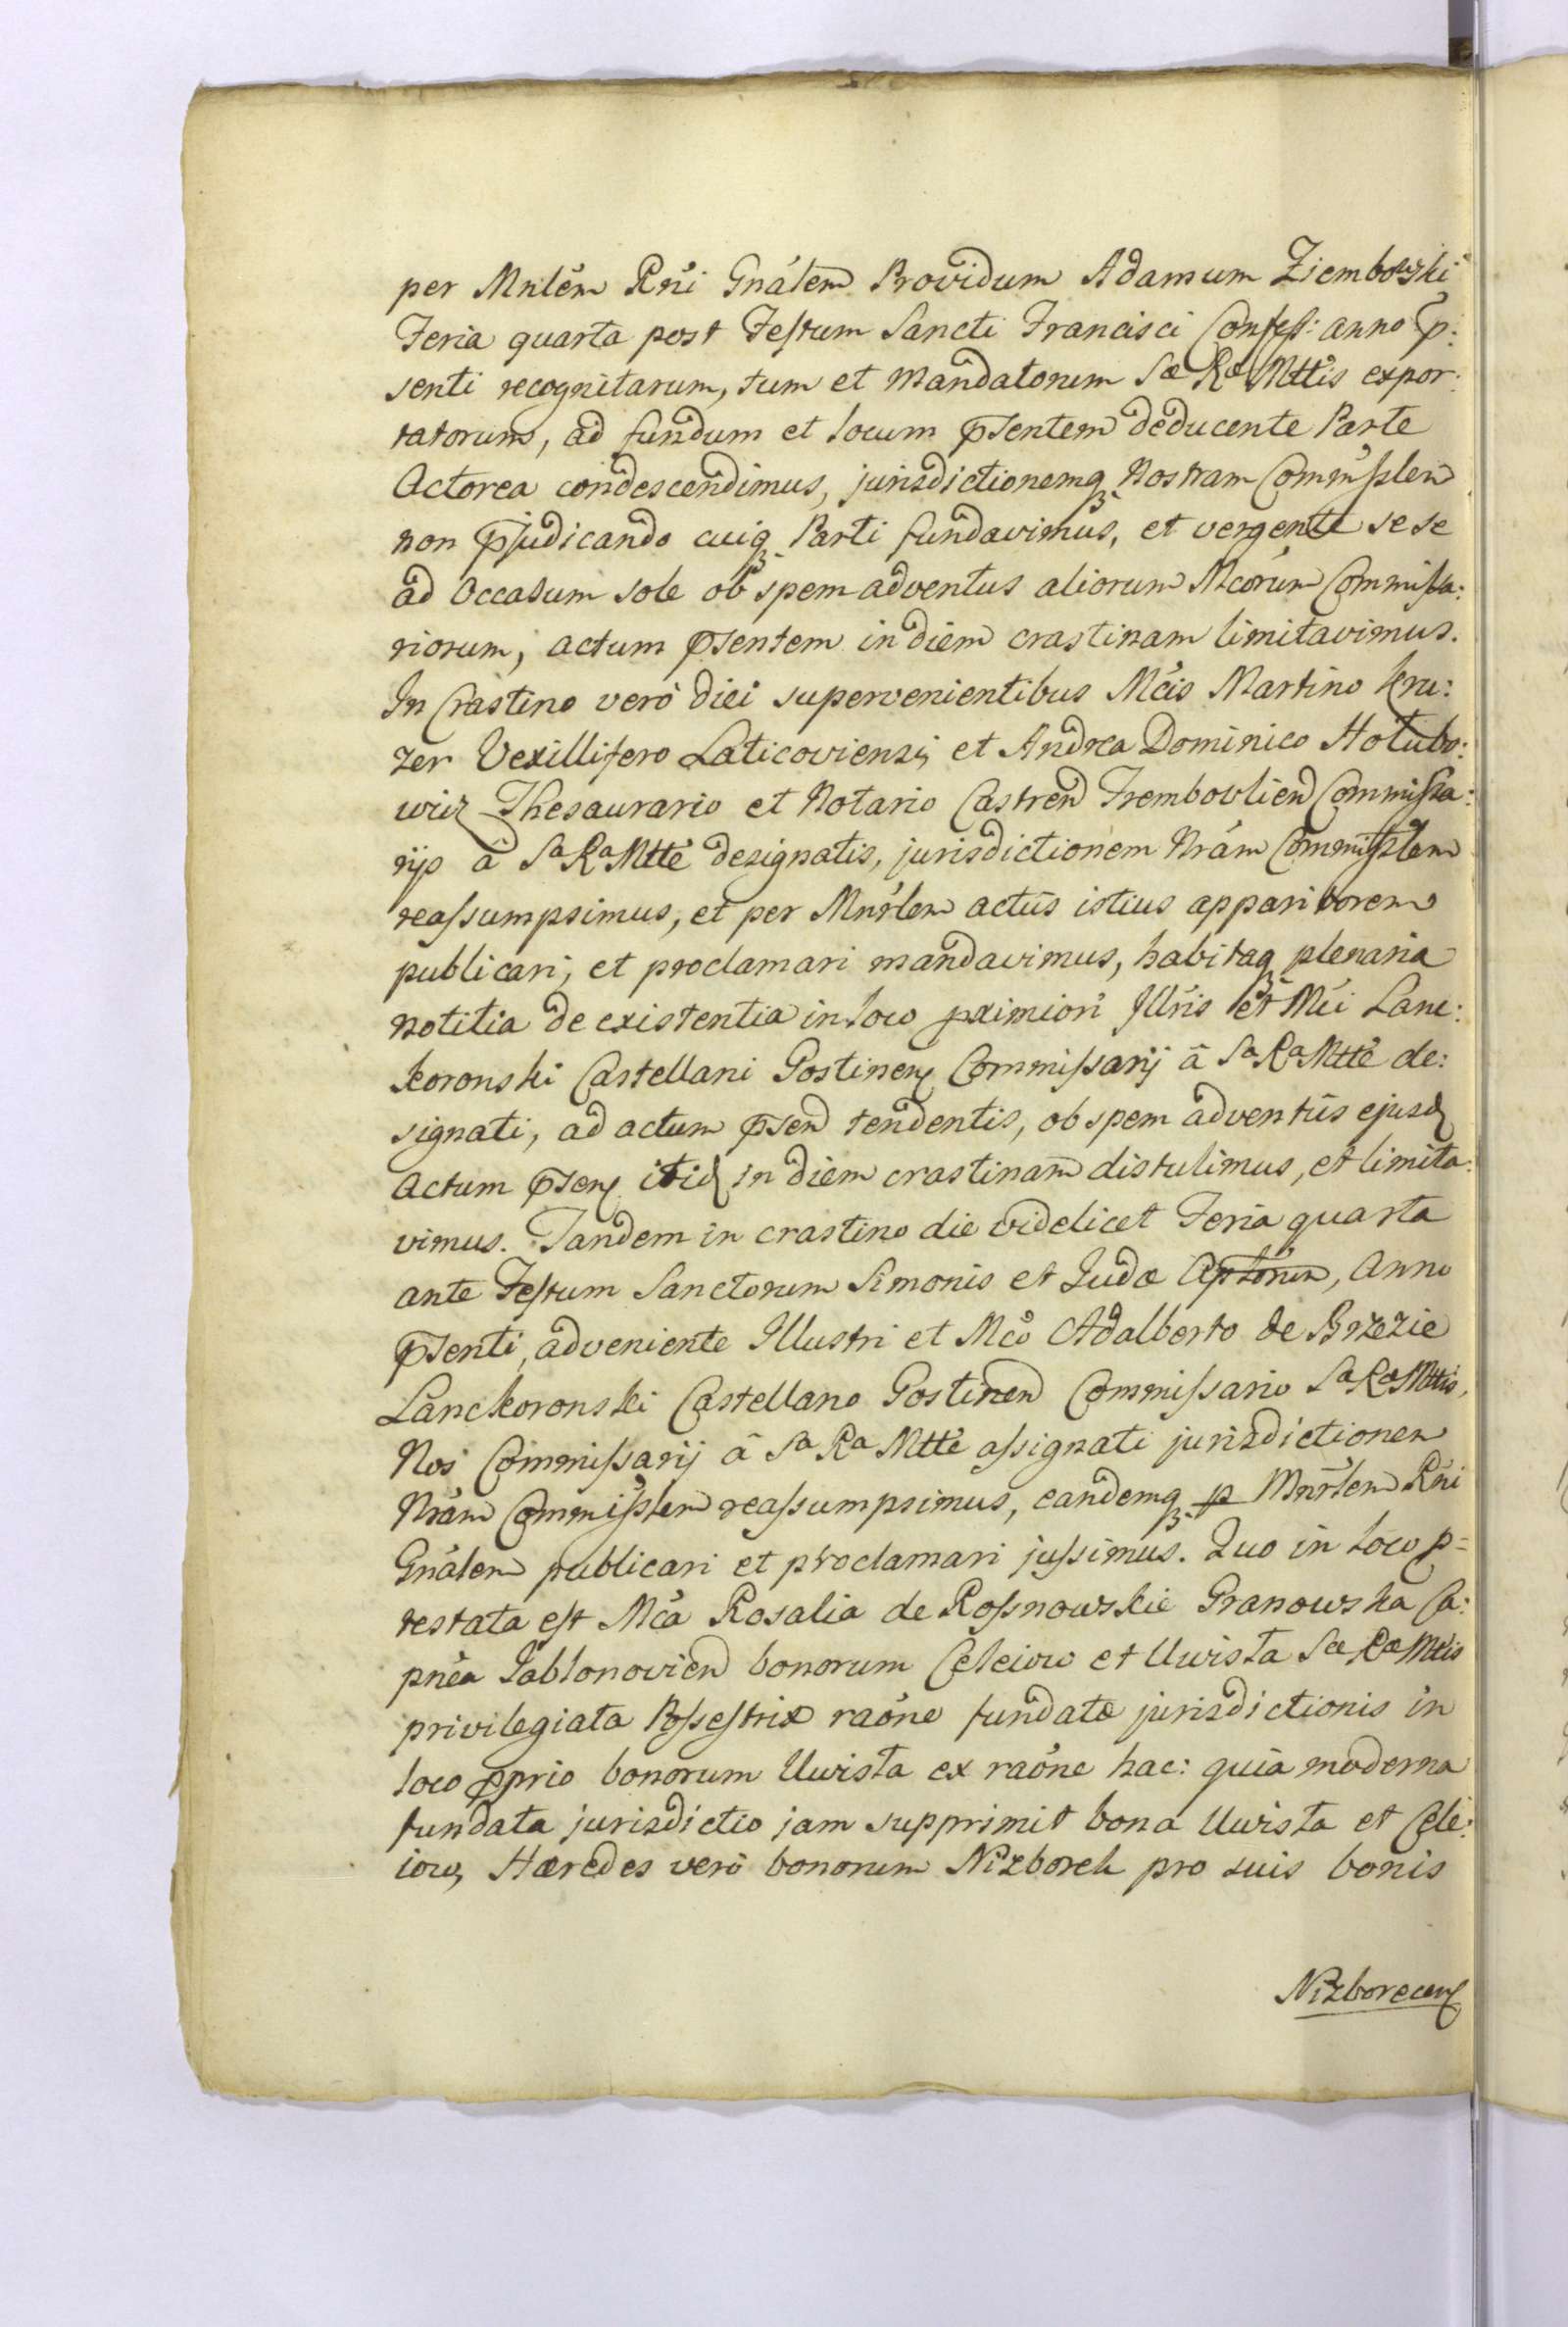 per Mnlem Rni Gnalem Providum Adamum Ziembowski
Feria quarta post Festum Sancti Francisci Confess: anno p̄:
senti recognitarum, tum et mandatorum Sæ Ræ Mttis expor:
tatorum, ad fundum et locum p̄sentem deducente Parte
Actorea condescendimus, jurisdictionemq₃ Nostram Commisslem̄
non p̄judicando cuiq₃ Parti fundavimus, et vergente sese
ad Occasum sole ob spem adventus aliorum Mcorum Commissa:
riorum, actum p̄sentem in diem crastinam limitavimus.
In Crastino verò diei supervenientibus Mcis Martino Kru:
zer Vexillifero Laticoviensi, et Andrea Dominico Holubo:
wicz Thesaurario et Notario Castren̄ Trembovlien̄ Commissa:
rijs â Sa Ra Mtte designatis, jurisdictionem Nram Commisslem
reassumpsimus, et per Mnrlem actûs istius apparitorem
publicari, et proclamari mandavimus, habitaq₃ plenaria
notitia de existentia in loco p̱ximiori Illris et Mci Lanc:
koronski Castellani Gostinen̄ Commissarij â Sa Ra Mtte de:
signati, ad actum p̄sen̄ tendentis, ob spem adventûs ejusd̄
Actum p̄sen̄ itid̄ in diem crastinam distulimus, et limita:
vimus. Tandem in crastino die videlicet Feria quarta
ante Festum Sanctorum Simonis et Judæ Aptorum, Anno
p̄senti, adveniente Illustri et Mco Adalberto de Brzezie
Lanckoronski Castellano Gostinen̄ Commissario Sa Ra Mttis,
Nos Commissarij â Sa Ra Mtte assignati jurisdictionem
Nram Commisslem reassumpsimus, eandemq₃ p̱ Mnrlem Rni
Gnalem publicari et proclamari jussimus. Quo in loco p=
testata est Mca Rosalia de Rossnowskie Granowska Ca:
pnea Jablonovien̄ bonorum Celeiow et Uwista Sæ Ræ Mttis
privilegiata Possestrix raone fundatæ jurisdictionis in
loco p̱prio bonorum Uwista ex raone hac: quia moderna
fundata jurisdictio jam supprimit bona Uwista et Cele:
iow, Hæredes verò bonorum Nizborek pro suis bonis
Nizborecen̄